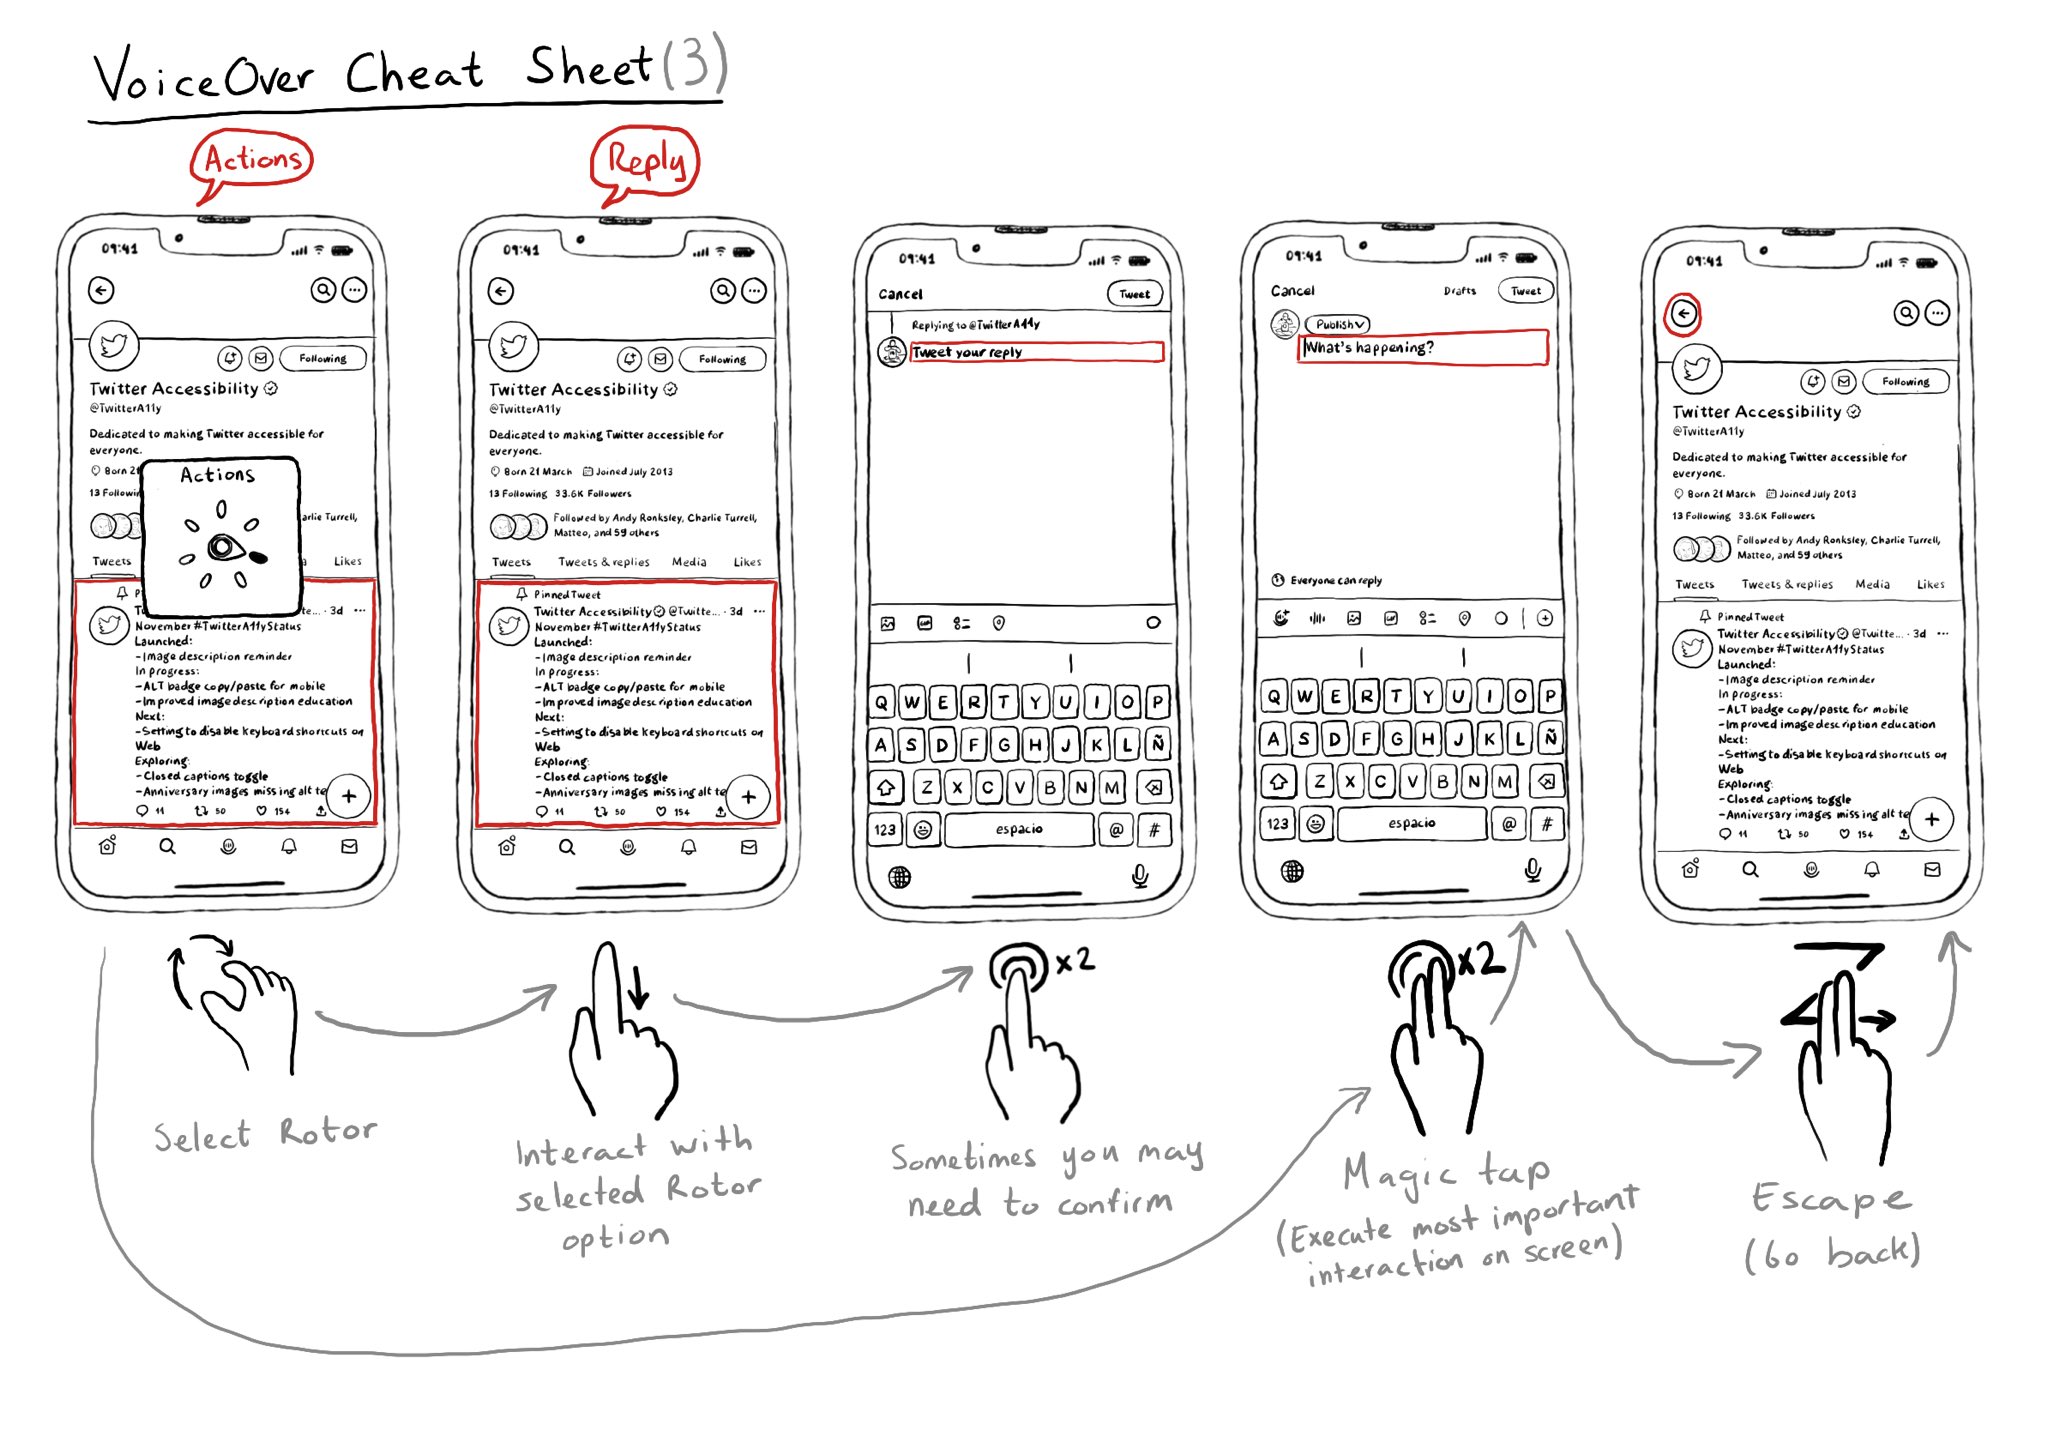 VoiceOver Cheat Sheet (3)
Actions
09:41
Following
Twitter Accessibility
@TwitterA11y
Dedicated to making Twitter accessible for
everyone.
Born 21
13 Followin
arlie Turrell,
Actions
Tweets
Likes
te... · 3d ...
November #TwitterA11yStatus
Launched:
-Image description reminder
In progress:
-ALT badge copy/paste for mobile
-Improved image description education
Next:
-Setting to disable keyboard shortcuts on
Web
Exploring:
-Closed captions toggle
-Anniversary images missing alt te
11 50 154
Select Rotor
Reply
09:41
Following
Twitter Accessibility
@TwitterA11y
Dedicated to making Twitter accessible for
everyone.
Born 21 March Joined July 2013
13 Following 33.6K Followers
Followed by Andy Ronksley, Charlie Turrell,
Matteo, and 59 others
Tweets Tweets & replies Media Likes
Pinned Tweet
Twitter Accessibility @Twitte... · 3d ...
November #TwitterA11yStatus
Launched:
-Image description reminder
In progress:
-ALT badge copy/paste for mobile
-Improved image description education
Next:
-Setting to disable keyboard shortcuts on
Web
Exploring:
-Closed captions toggle
-Anniversary images missing alt te
11 50 154
Interact with
selected Rotor
option
09:41
Cancel Tweet
Replying to @TwitterA11y
Tweet your reply
GIF
Q W E R T Y U I O P
A S D F G H J K L Ñ
Z X C V B N M
123 espacio @ #
x2
Sometimes you may
need to confirm
09:41
Cancel Drafts Tweet
Publish
What's happening?
Everyone can reply
GIF
Q W E R T Y U I O P
A S D F G H J K L Ñ
Z X C V B N M
123 espacio @ #
x2
Magic tap
(Execute most important
interaction on screen)
09:41
Following
Twitter Accessibility
@TwitterA11y
Dedicated to making Twitter accessible for
everyone.
Born 21 March Joined July 2013
13 Following 33.6K Followers
Followed by Andy Ronksley, Charlie Turrell,
Matteo, and 59 others
Tweets Tweets & replies Media Likes
Pinned Tweet
Twitter Accessibility @Twitte... · 3d ...
November #TwitterA11yStatus
Launched:
-Image description reminder
In progress:
-ALT badge copy/paste for mobile
-Improved image description education
Next:
-Setting to disable keyboard shortcuts on
Web
Exploring:
-Closed captions toggle
-Anniversary images missing alt te
11 50 154
Escape
(Go back)